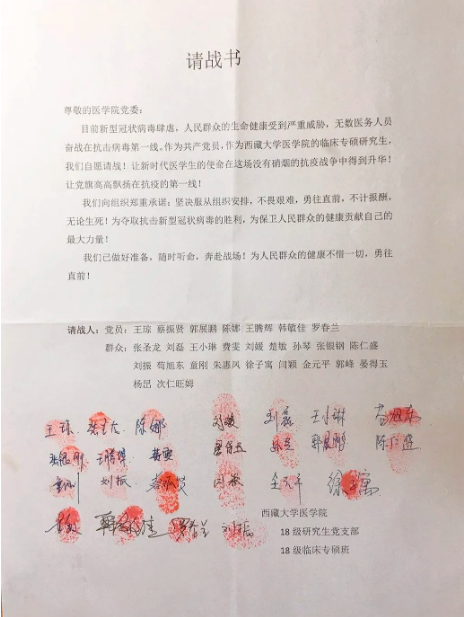 请战书
尊敬的医学院党委：
目前新型冠状病毒肆虐，人民群众的生命健康受到严重威胁，无数医务人员
奋战在抗击病毒第一线。作为共产党员，作为西藏大学医学院的临床专硕研究生，
我们自愿请战！让新时代医学生的使命在这场没有硝烟的抗疫战争中得到升华！
让党旗高高飘扬在抗疫的第一线！
我们向组织郑重承诺：坚决服从组织安排，不畏艰难，勇往直前，不计报酬，
无论生死！为夺取抗击新型冠状病毒的胜利，为保卫人民群众的健康贡献自己的
最大力量！
我们已做好准备，随时听命，奔赴战场！为人民群众的健康不惜一切，勇往
直前！
请战人：党员：王琼 蔡振贤 郭展鹏 陈娜 王腾辉 韩敏佳 罗春兰
群众：张圣龙 刘磊 王小琳 费雯 刘媛 楚敏 孙琴 张银钢 陈仁盛
刘振 苟旭东 童刚 朱惠风 徐子寓 闫颖 金元平 郭峰 晏得玉
杨昂 次仁旺姆
王琼 张圣龙 陈娜 刘媛 刘磊 王小琳 苟旭东
张银钢 王腾辉 费雯 晏得玉 孙琴 郭展鹏 陈仁盛
童刚 刘振 蔡振贤 闫颖 金元平 徐子寓
韩敏佳 罗春兰
西藏大学医学院
18 级研究生党支部
18 级临床专硕班